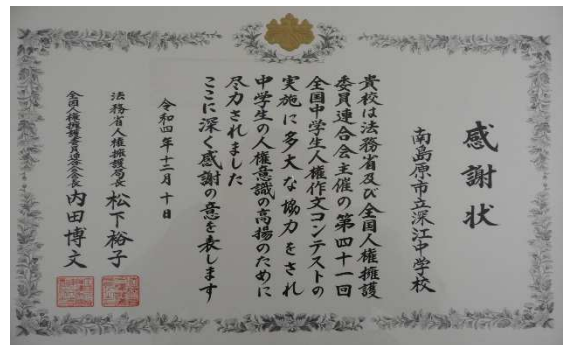 感謝状
南島原市立深江中学校
貴校は法務省及び全国人権擁護
委員連合会主催の第四十一回
全国中学生人権作文コンテストの
実施に多大な協力をされ
中学生の人権意識の高揚のために
尽力されました
ここに深く感謝の意を表します
令和四年十二月十日
法務省人権擁護局長 松下裕子
全国人権擁護委員連合会会長 内田博文